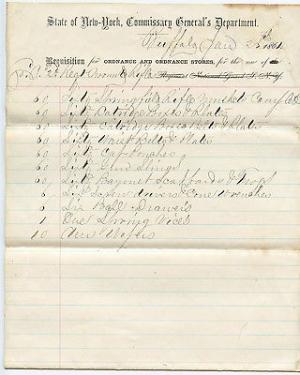 State of New-York, Commissary General's Department.
Buffalo Jan 1861
Requisition for ORDNANCE AND ORDNANCE STORES, for the use of the
Regt
60 Sixty Springfield Rifle Muskets Comp
60 Sixty Catridge Boxes & Plates
60 Sixty Catridge Box Belts & Plates
60 Sixty Waist Belts & Plates
60 Sixty Cap Pouches
60 Sixty Gun Slings
60 Sixty Bayonet Scabbards &
6 Six Screw Drivers & Cone Wrenches
6 Six Ball Drawers
1 One Spring Vice
10 Wipers